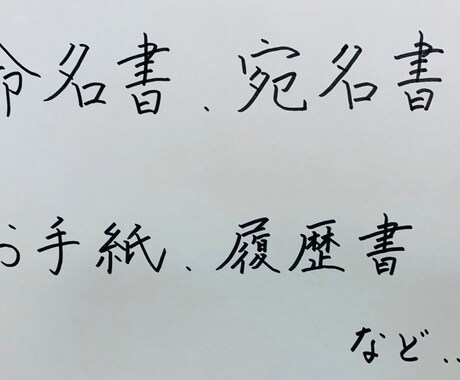 命名書、宛名書
お手紙、履歴書
など..